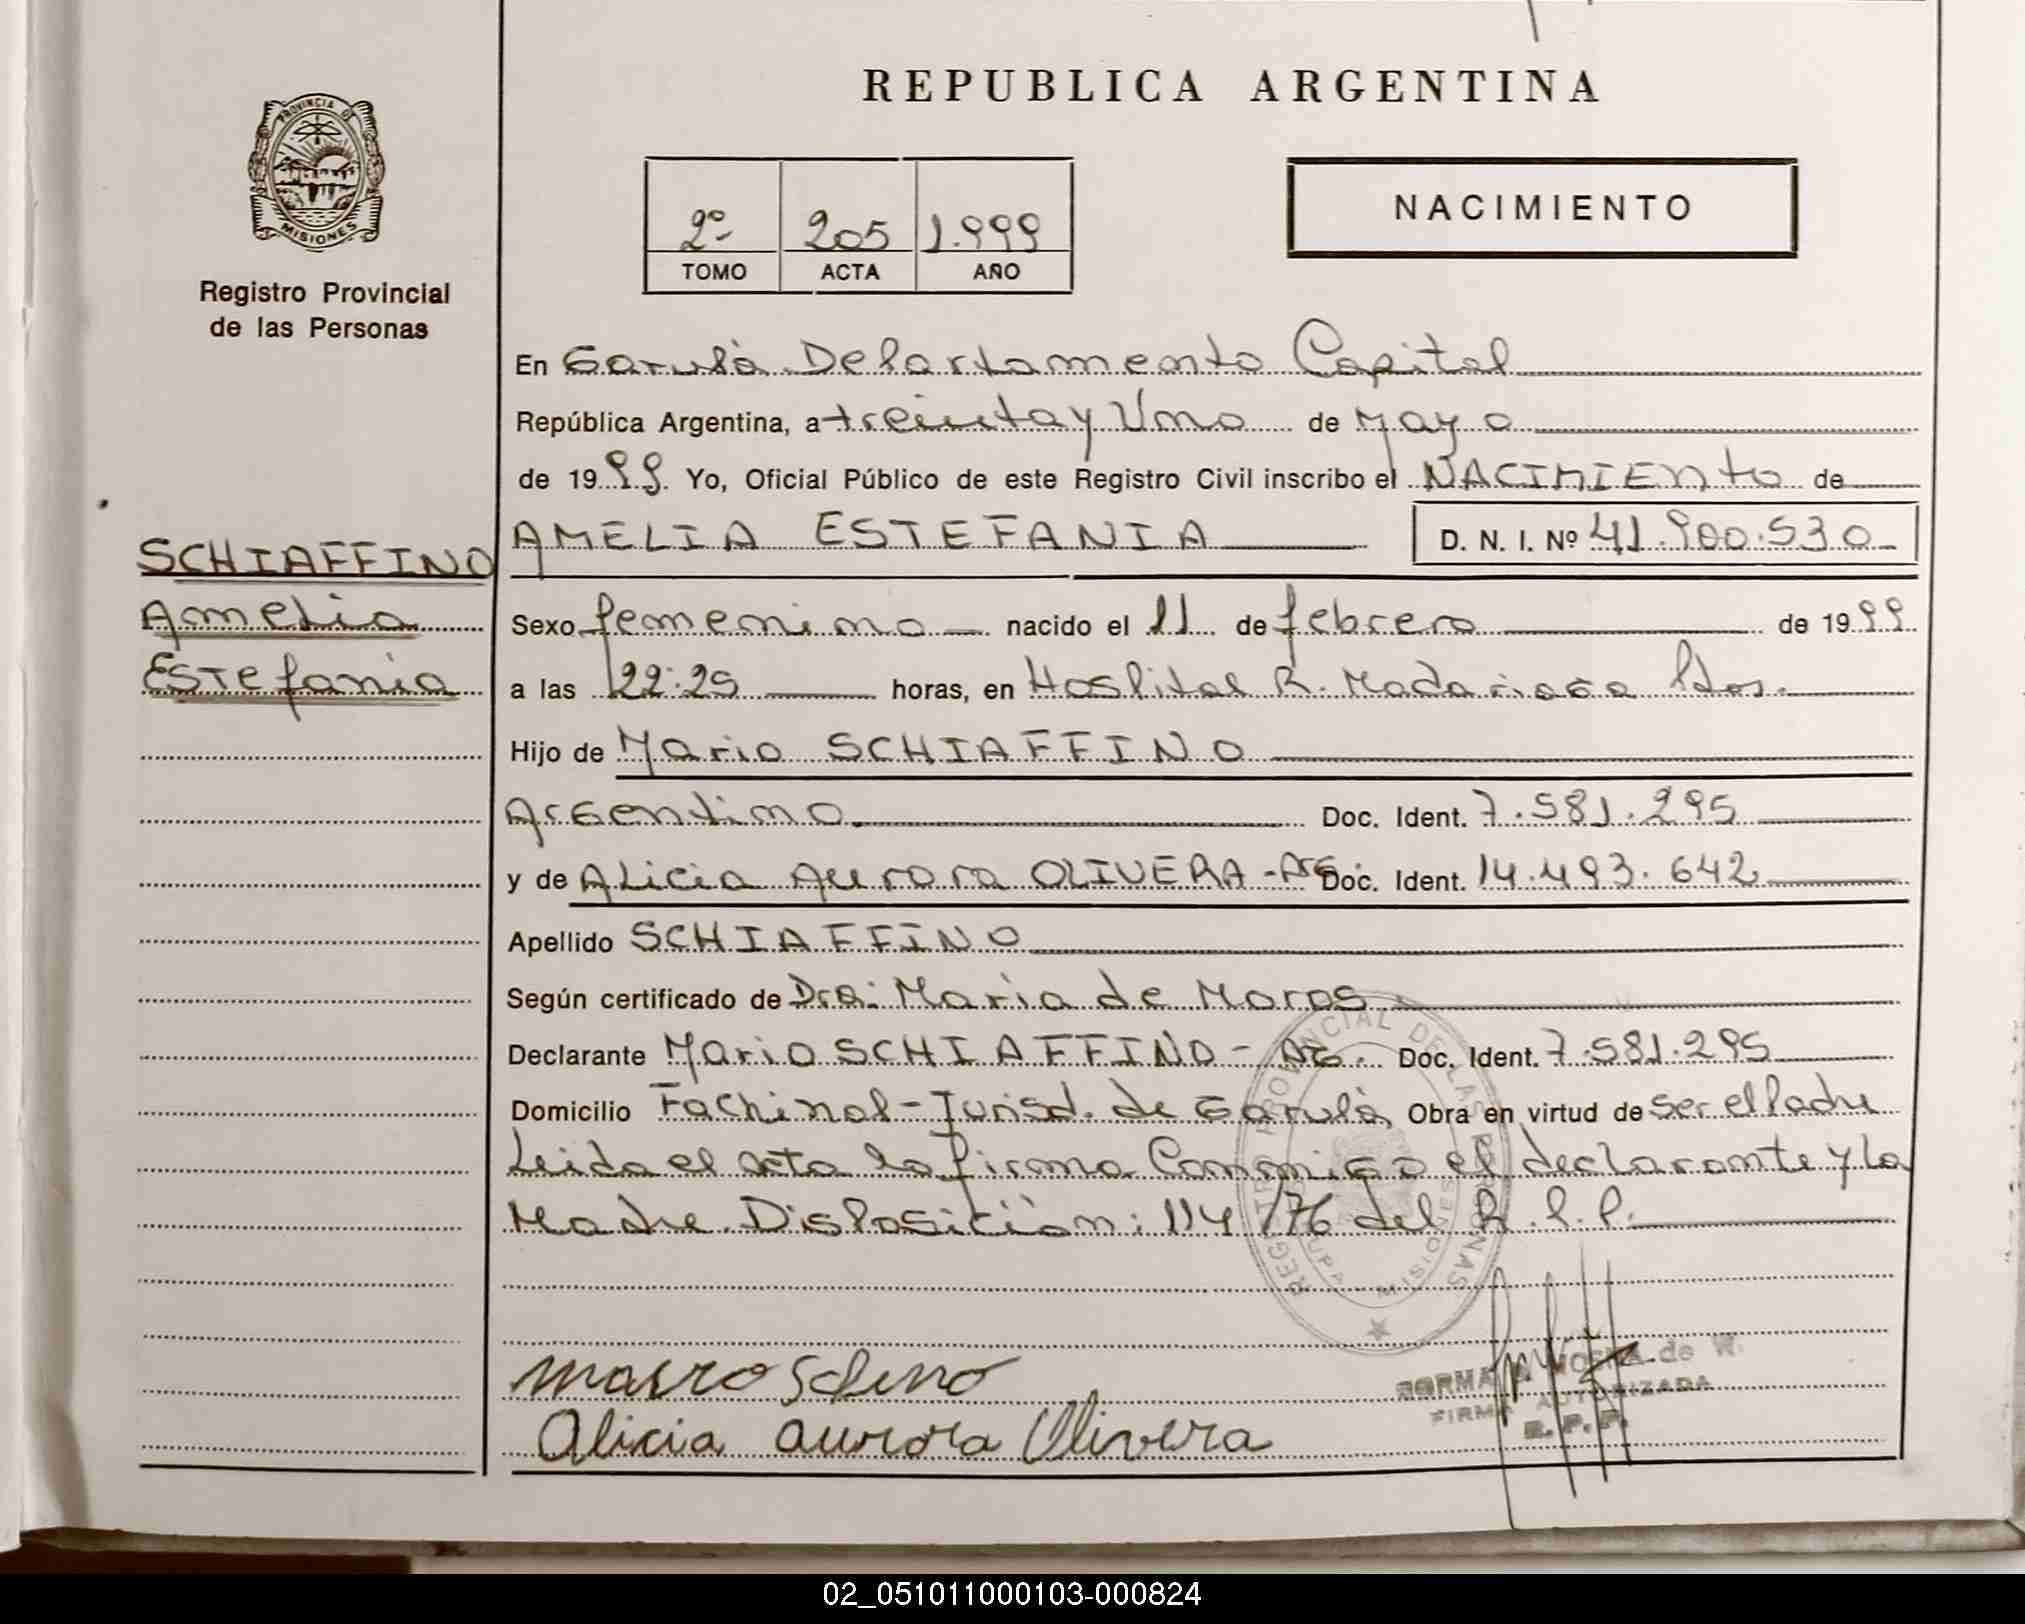 REPUBLICA ARGENTINA
PROVINCIA DE
MISIONES
Registro Provincial
de las Personas
2º 205 1.999
TOMO ACTA AÑO
NACIMIENTO
En Garupá Departamento Capital
República Argentina, a treinta y Uno de Mayo
de 1999 Yo, Oficial Público de este Registro Civil inscribo el NACIMIENTO de
AMELIA ESTEFANIA D. N. I. Nº 41.900.530
SCHIAFFINO
Amelia
Estefania
Sexo femenino nacido el 11 de febrero de 1999
a las 22:25 horas, en Hospital R. Madariaga Pdas.
Hijo de Mario SCHIAFFINO
Argentino Doc. Ident. 7.581.295
y de Alicia Aurora OLIVERA - Arg Doc. Ident. 14.493.642
Apellido SCHIAFFINO
Según certificado de Dra. Maria de Moros
Declarante Mario SCHIAFFINO - Arg. Doc. Ident. 7.581.295
Domicilio Fachinal - Jurisd. de Garupá Obra en virtud de ser el Padre
Leida el acta la firma Conmigo el declarante y la
Madre Disposición: 114/76 del R.P.P.
REGISTRO PROVINCIAL DE LAS PERSONAS
MISIONES
Alicia Aurora Olivera
de W.
FIRMA AUTORIZADA
R.P.P.
02_051011000103-000824